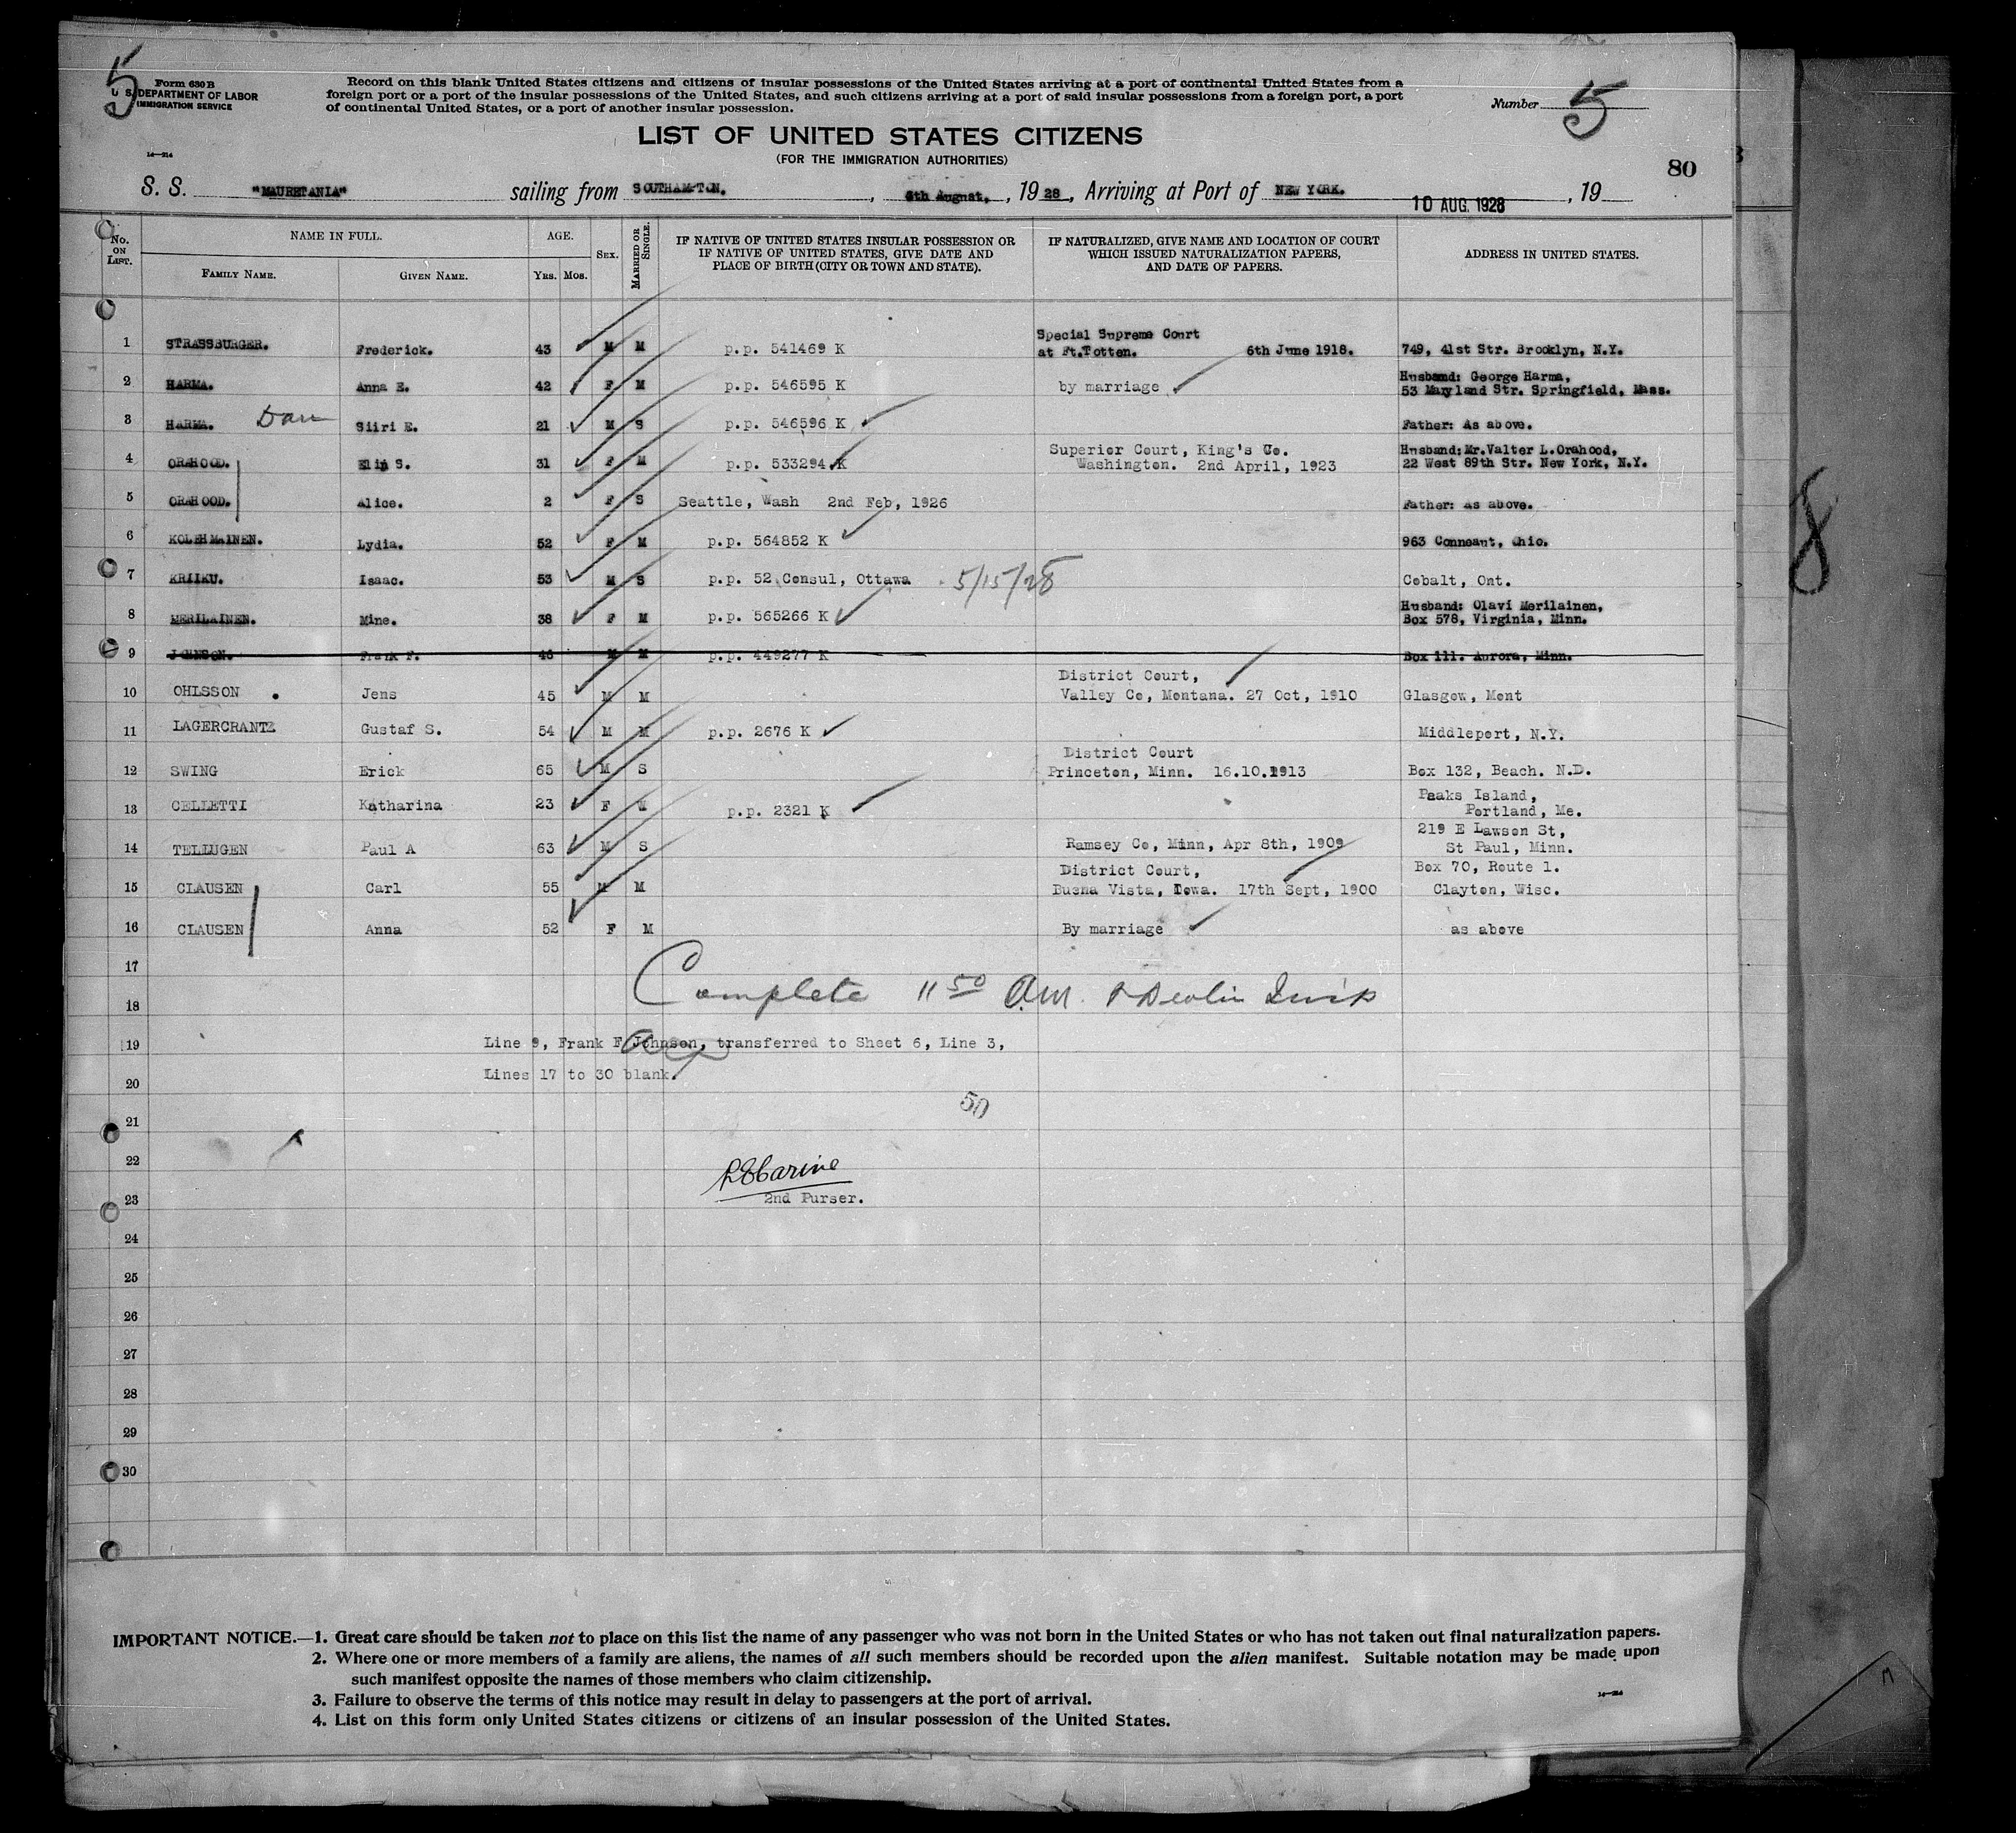 5
Form 630 B
U. S. DEPARTMENT OF LABOR
IMMIGRATION SERVICE
Record on this blank United States citizens and citizens of insular possessions of the United States arriving at a port of continental United States from a
foreign port or a port of the insular possessions of the United States, and such citizens arriving at a port of said insular possessions from a foreign port, a port
of continental United States, or a port of another insular possession.
Number 5
LIST OF UNITED STATES CITIZENS
(FOR THE IMMIGRATION AUTHORITIES)
14—214
80
S. S. "MAURETANIA" sailing from SOUTHAMPTON. , 4th August, , 19 28 , Arriving at Port of NEW YORK. 10 AUG. 1928 , 19
No. ON LIST. NAME IN FULL. AGE. SEX. MARRIED OR SINGLE. IF NATIVE OF UNITED STATES INSULAR POSSESSION OR IF NATIVE OF UNITED STATES, GIVE DATE AND PLACE OF BIRTH (CITY OR TOWN AND STATE). IF NATURALIZED, GIVE NAME AND LOCATION OF COURT WHICH ISSUED NATURALIZATION PAPERS, AND DATE OF PAPERS. ADDRESS IN UNITED STATES.
FAMILY NAME. GIVEN NAME. YRS. MOS.
1 STRASSBURGER. Frederick. 43 M M p.p. 541469 K Special Supreme Court at Ft.Totten. 6th June 1918. 749, 41st Str. Brooklyn, N.Y.
2 HARMA. Anna E. 42 F M p.p. 546595 K by marriage Husband: George Harma, 53 Maryland Str. Springfield, Mass.
3 HARMA. Dau Siiri E. 21 M S p.p. 546596 K Father: As above.
4 ORAHOOD. Elin S. 31 F M p.p. 533294 K Superior Court, King's Co. Washington. 2nd April, 1923 Husband: Mr.Valter L.Orahood, 22 West 89th Str. New York, N.Y.
5 ORAHOOD. Alice. 2 F S Seattle, Wash 2nd Feb, 1926 Father: as above.
6 KOLEHMAINEN. Lydia. 52 F M p.p. 564852 K 963 Conneaut, Ohio.
7 KRIIKU. Isaac. 53 M S p.p. 52 Consul, Ottawa 5/15/28 Cobalt, Ont.
8 MERILAINEN. Mine. 38 F M p.p. 565266 K Husband: Olavi Merilainen, Box 578, Virginia, Minn.
9 JOHNSON. Frank F. 46 M M p.p. 449277 K Box 111. Aurora, Minn.
10 OHLSSON . Jens 45 M M District Court, Valley Co, Montana. 27 Oct, 1910 Glasgow, Mont
11 LAGERCRANTZ Gustaf S. 54 M M p.p. 2676 K Middleport, N.Y.
12 SWING Erick 65 M S District Court Princeton, Minn. 16.10.1913 Box 132, Beach. N.D.
13 CELLETTI Katharina 23 F M p.p. 2321 K Peaks Island, Portland, Me.
14 TELLUGEN Paul A 63 M S Ramsey Co, Minn, Apr 8th, 1909 219 E Lawson St, St Paul, Minn.
15 CLAUSEN Carl 55 M M District Court, Buena Vista, Iowa. 17th Sept, 1900 Box 70, Route 1. Clayton, Wisc.
16 CLAUSEN Anna 52 F M By marriage as above
17
18 Complete 11 50 a.m. Devlin Insp
19 Line 9, Frank F Johnson, transferred to Sheet 6, Line 3,
20 Lines 17 to 30 blank.
50
21
22
2nd Purser.
23
24
25
26
27
28
29
30
8
IMPORTANT NOTICE.—1. Great care should be taken not to place on this list the name of any passenger who was not born in the United States or who has not taken out final naturalization papers.
2. Where one or more members of a family are aliens, the names of all such members should be recorded upon the alien manifest. Suitable notation may be made upon
such manifest opposite the names of those members who claim citizenship.
3. Failure to observe the terms of this notice may result in delay to passengers at the port of arrival.
4. List on this form only United States citizens or citizens of an insular possession of the United States.
14—214